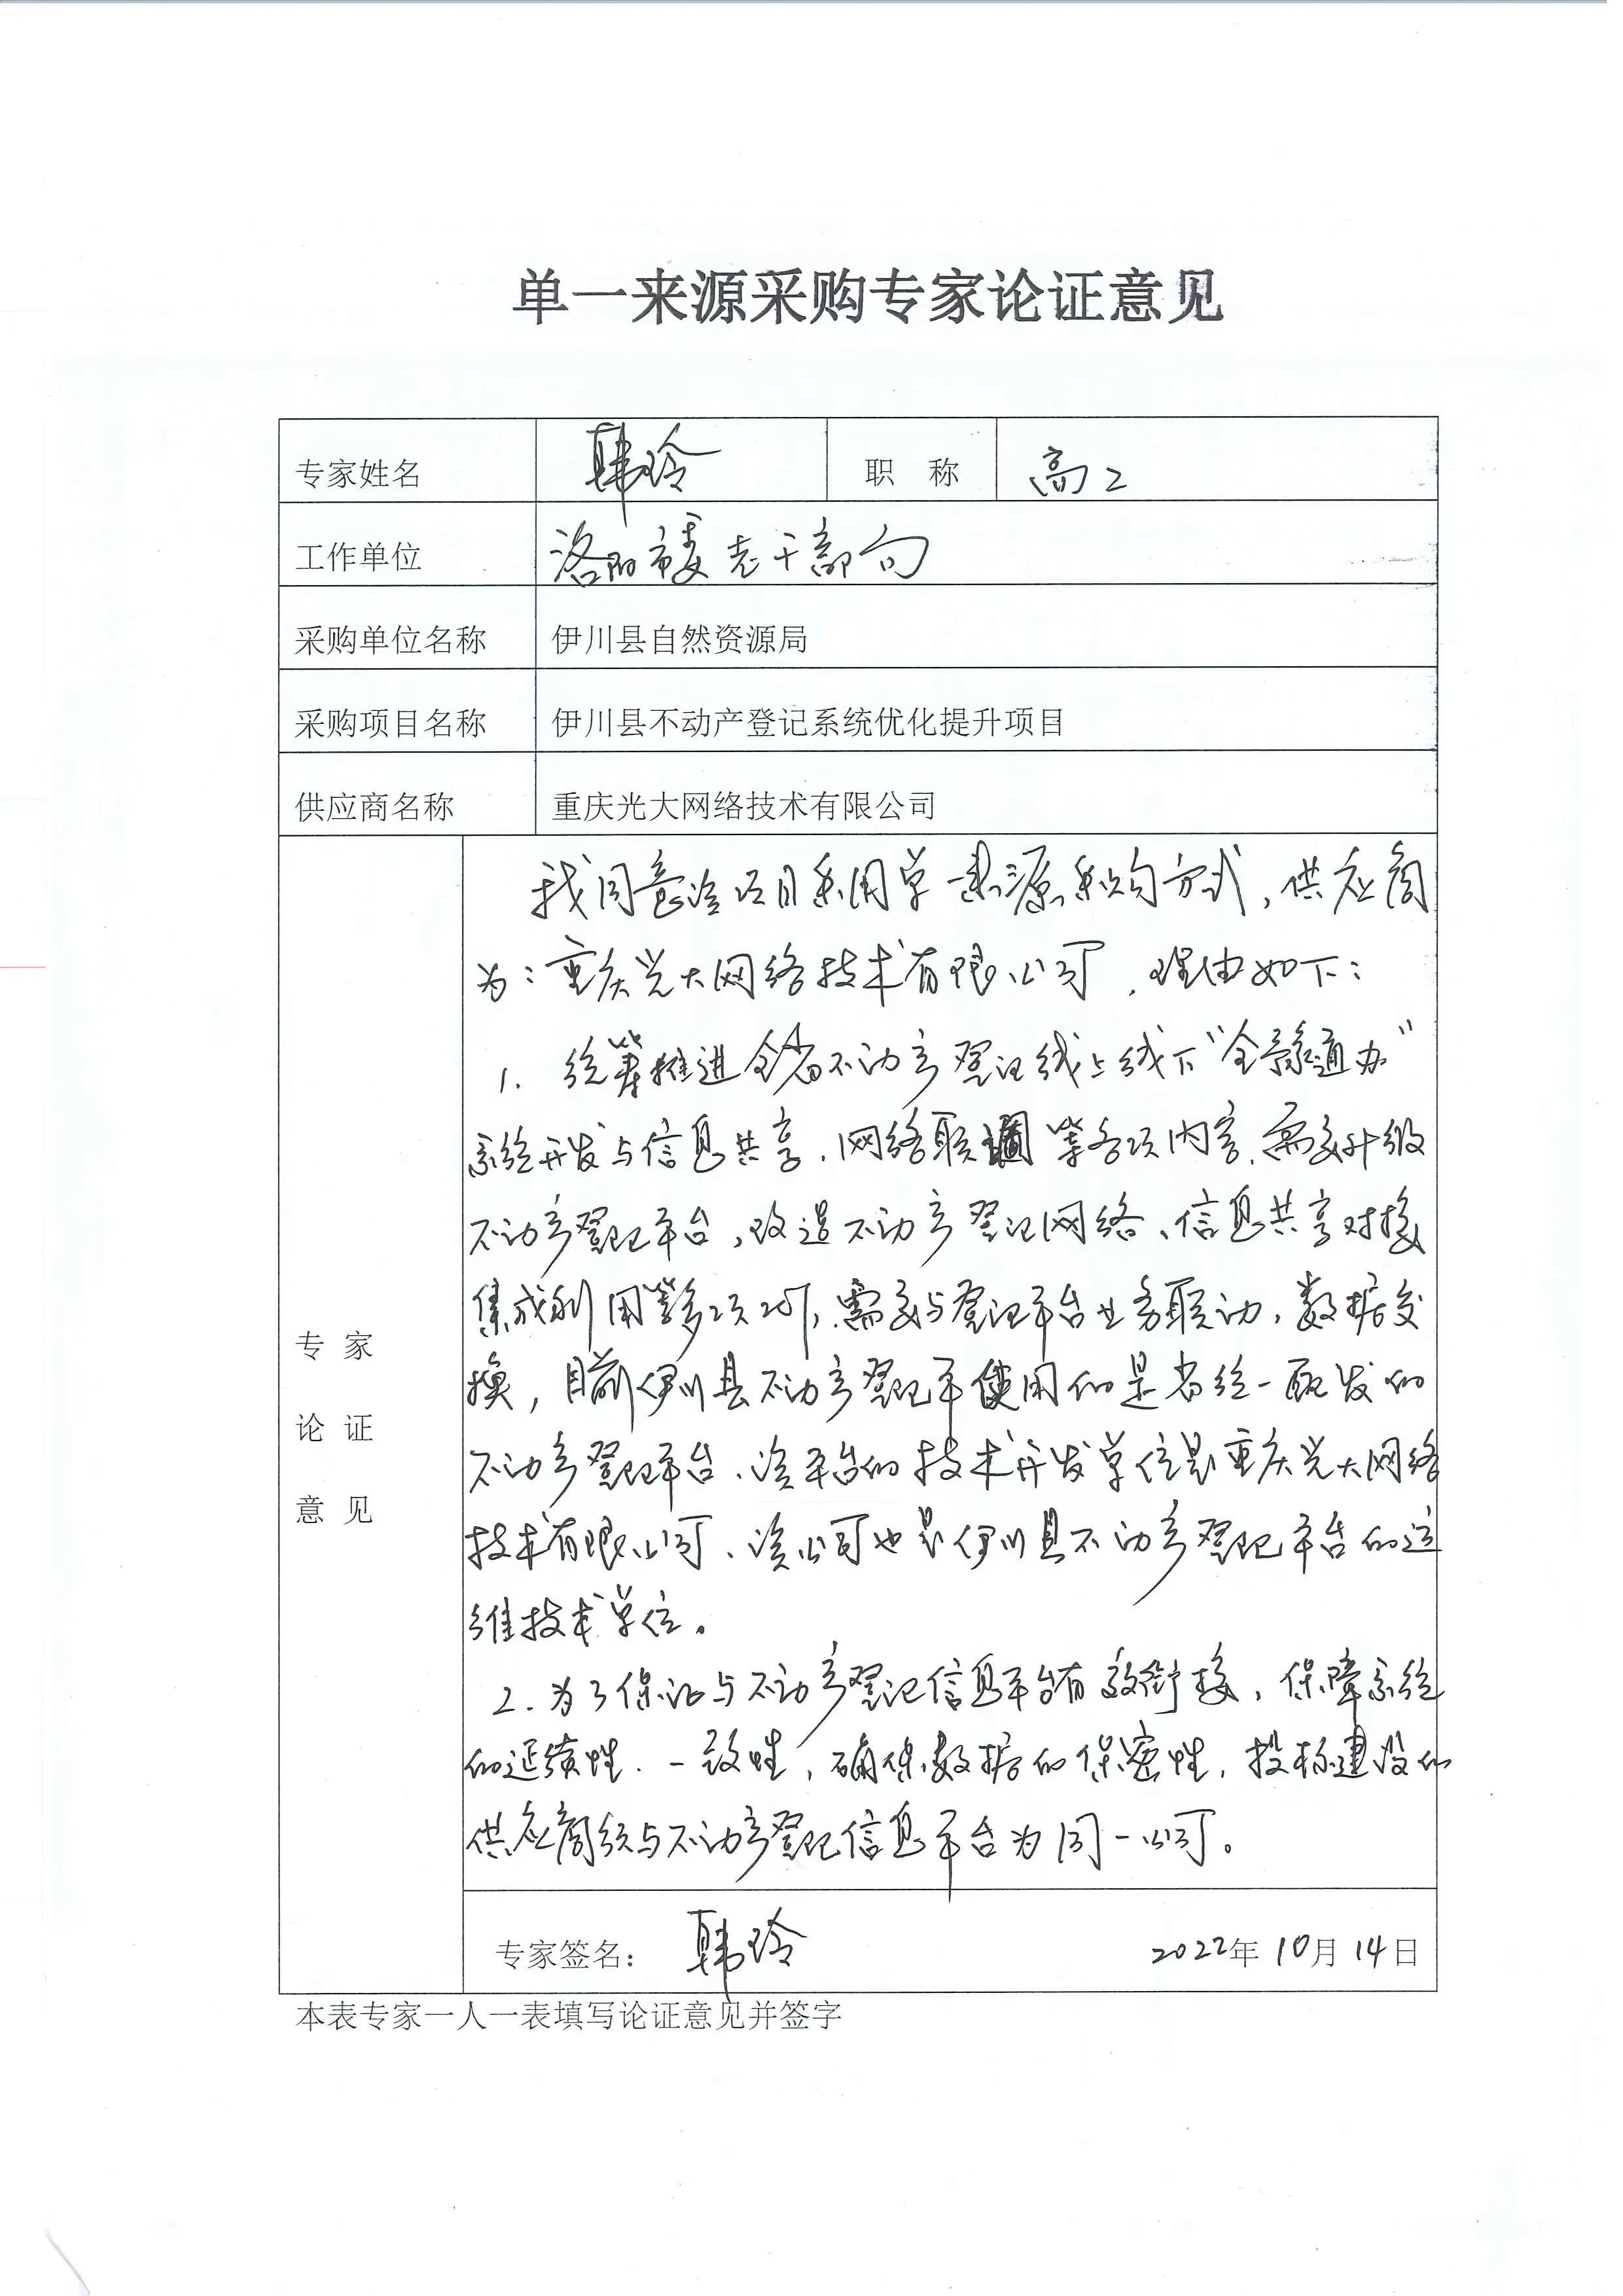 单一来源采购专家论证意见
专家姓名 韩玲 职 称 高工
工作单位 洛阳市委老干部局
采购单位名称 伊川县自然资源局
采购项目名称 伊川县不动产登记系统优化提升项目
供应商名称 重庆光大网络技术有限公司
专 家
论 证
意 见
我同意该项目采用单一来源采购方式,供应商
为:重庆光大网络技术有限公司,理由如下:
1. 统筹推进全省不动产登记线上线下“全豫通办”
系统开发与信息共享、网络联通等各项内容,需要升级
不动产登记平台,改造不动产登记网络、信息共享对接
集成利用等多项工作,需要与登记平台业务联动,数据交
换,目前伊川县不动产登记平使用的是省统一配发的
不动产登记平台、该平台的技术开发单位是重庆光大网络
技术有限公司、该公司也是伊川县不动产登记平台的运
维技术单位。
2. 为了保证与不动产登记信息平台有效衔接,保障系统
的延续性、一致性,确保数据的保密性,投标建设的
供应商须与不动产登记信息平台为同一公司。
专家签名: 韩玲 2022年10月14日
本表专家一人一表填写论证意见并签字